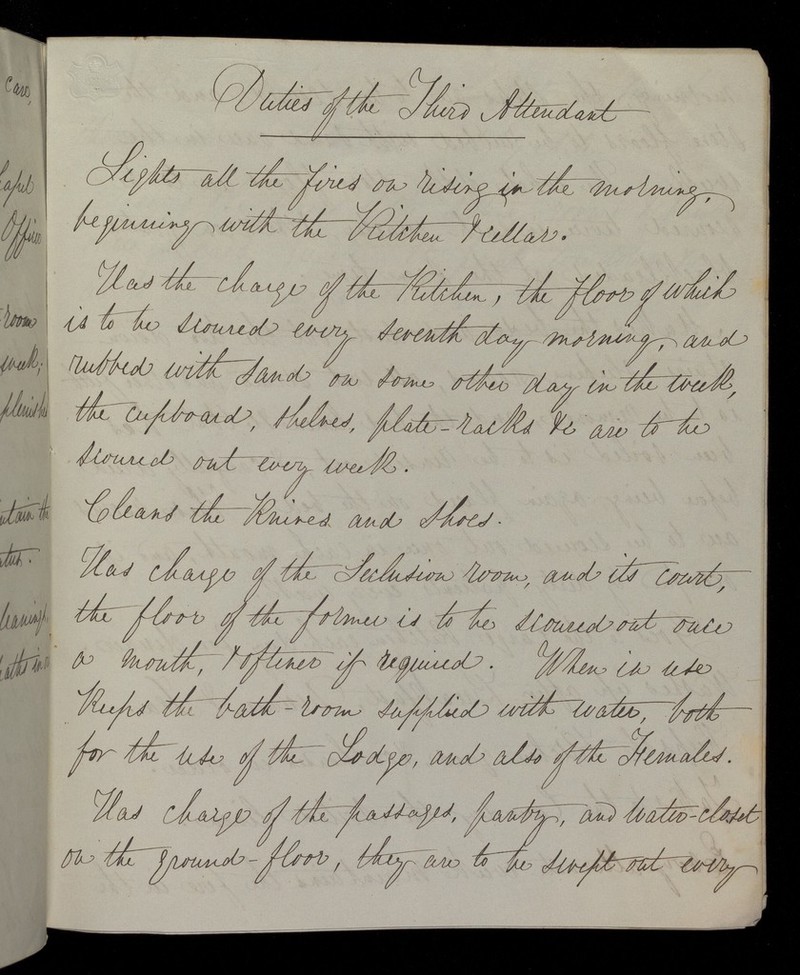 Care,
Office
room
week;
Duties of the Third Attendant
Lights all the fires on rising in the morning,
beginning with the Kitchen & cellar.
Has the charge of the Kitchen, the floor of which
is to be scoured every seventh day morning, and
rubbed with sand on some other day in the week,
the cupboard, shelves, plate-racks &c are to be
scoured out every week.
Cleans the Knives and shoes.
Has charge of the Seclusion room, and its court,
the floor of the former is to be scoured out once
a month, & oftener if required. When in use
Keeps the bath-room supplied with water, both
for the use of the Lodge, and also of the Females.
Has charge of the passages, pantry, and Water-closet
on the ground-floor, they are to be swept out every